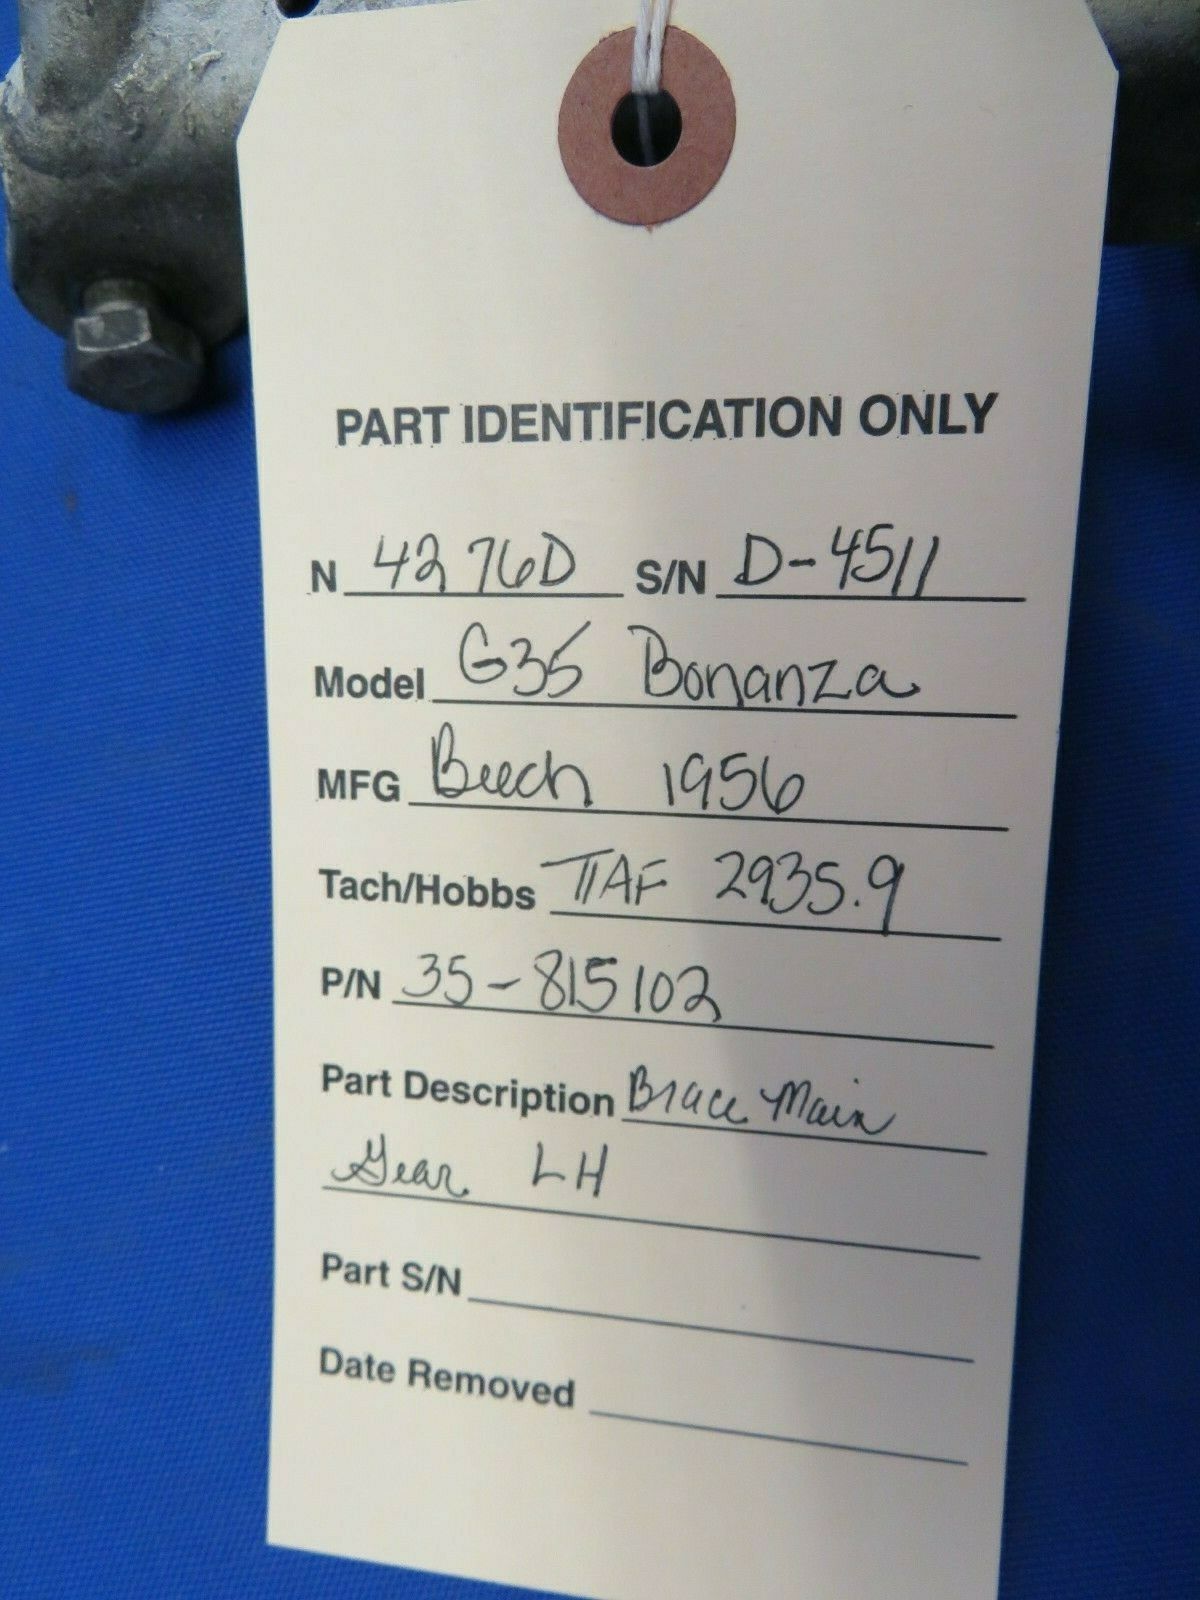 PART IDENTIFICATION ONLY
N 4276D S/N D-4511
Model G35 Bonanza
MFG Beech 1956
Tach/Hobbs TTAF 2935.9
P/N 35-815102
Part Description Brace Main
Gear LH
Part S/N
Date Removed